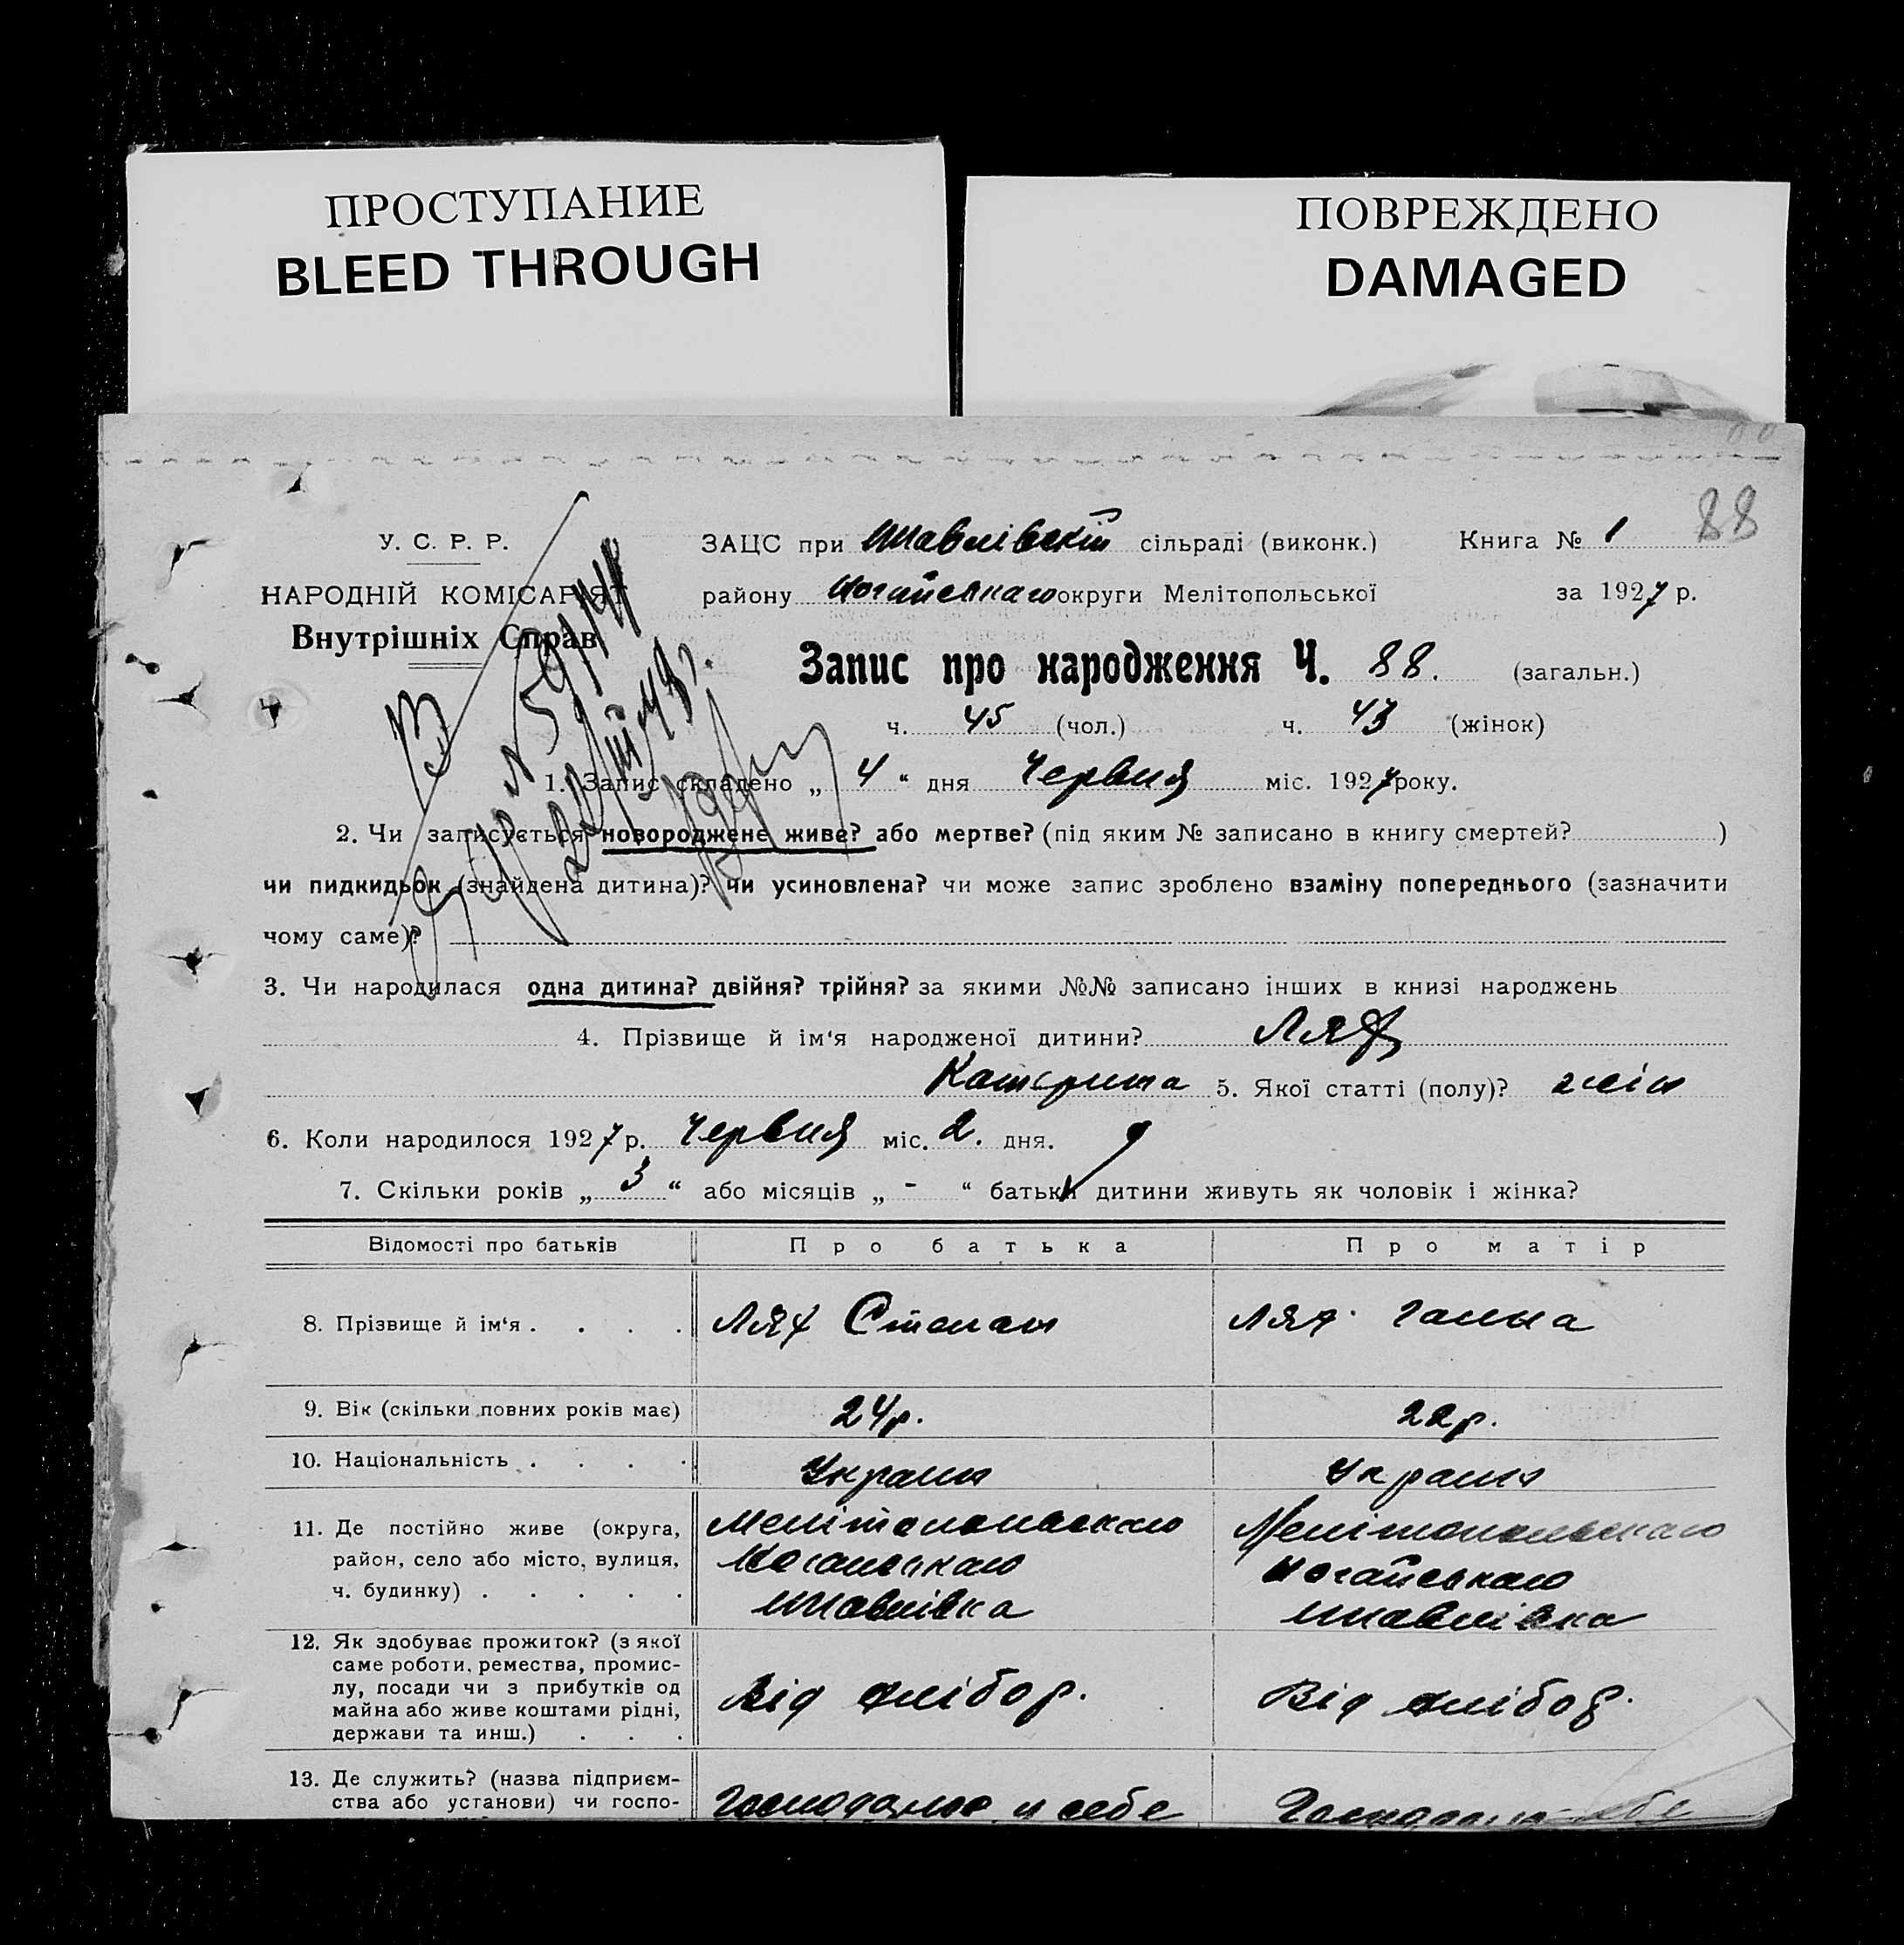 ПРОСТУПАНИЕ
BLEED THROUGH
ПОВРЕЖДЕНО
DAMAGED
88
У. С. Р. Р.
НАРОДНІЙ КОМІСАРІЯТ
Внутрішніх Справ
ЗАЦС при Шавлівскій сільраді (виконк.) Книга № 1
району Ногайського округи Мелітопольської за 1927 р.
Запис про народження Ч. 88. (загальн.)
ч. 45 (чол.) ч. 43 (жінок)
1. Запис складено „ 4 “ дня Червня міс. 1927 року.
2. Чи записується новороджене живе? або мертве? (під яким № записано в книгу смертей? )
чи пидкидьок (знайдена дитина)? чи усиновлена? чи може запис зроблено взаміну попереднього (зазначити
чому саме)?
3. Чи народилася одна дитина? двійня? трійня? за якими №№ записано інших в книзі народжень
4. Прізвище й ім‘я народженої дитини? Лях
Катерина 5. Якої статті (полу)? жін
6. Коли народилося 1927 р. Червня міс. 2. дня.
7. Скільки років „ 3 “ або місяців „ - “ батьки дитини живуть як чоловік і жінка?
Відомості про батьків Про батька Про матір
8. Прізвище й ім‘я . . . . Лях Степан Лях Ганна
9. Вік (скільки повних років має) 24р. 22р.
10. Національність . . . . Украин Украин
11. Де постійно живе (округа, район, село або місто, вулиця, ч. будинку) . . . . .
Мелітопольскаго
Ногайскаго
Шавлівка
Мелітопольскаго
Ногайськаго
Шавлівка
12. Як здобуває прожиток? (з якої
саме роботи, ремества, промис-
лу, посади чи з прибутків од
майна або живе коштами рідні,
держави та инш.) . . .
Від хлібор. Від хлібор.
13. Де служить? (назва підприєм-
ства або установи) чи госпо-
Господарює у себе